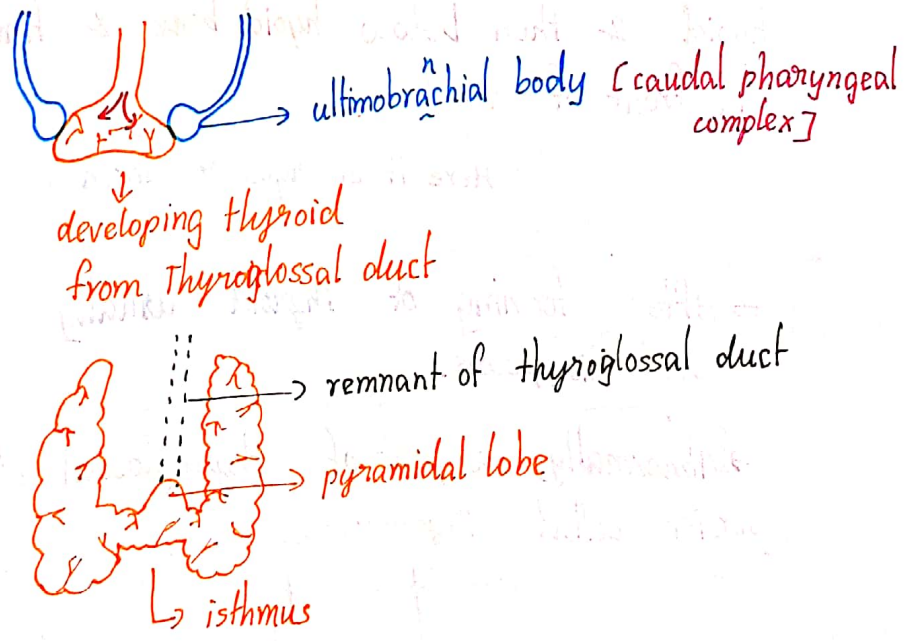 ultimobranchial body [caudal pharyngeal
complex]
developing thyroid
from Thyroglossal duct
remnant of thyroglossal duct
pyramidal lobe
isthmus